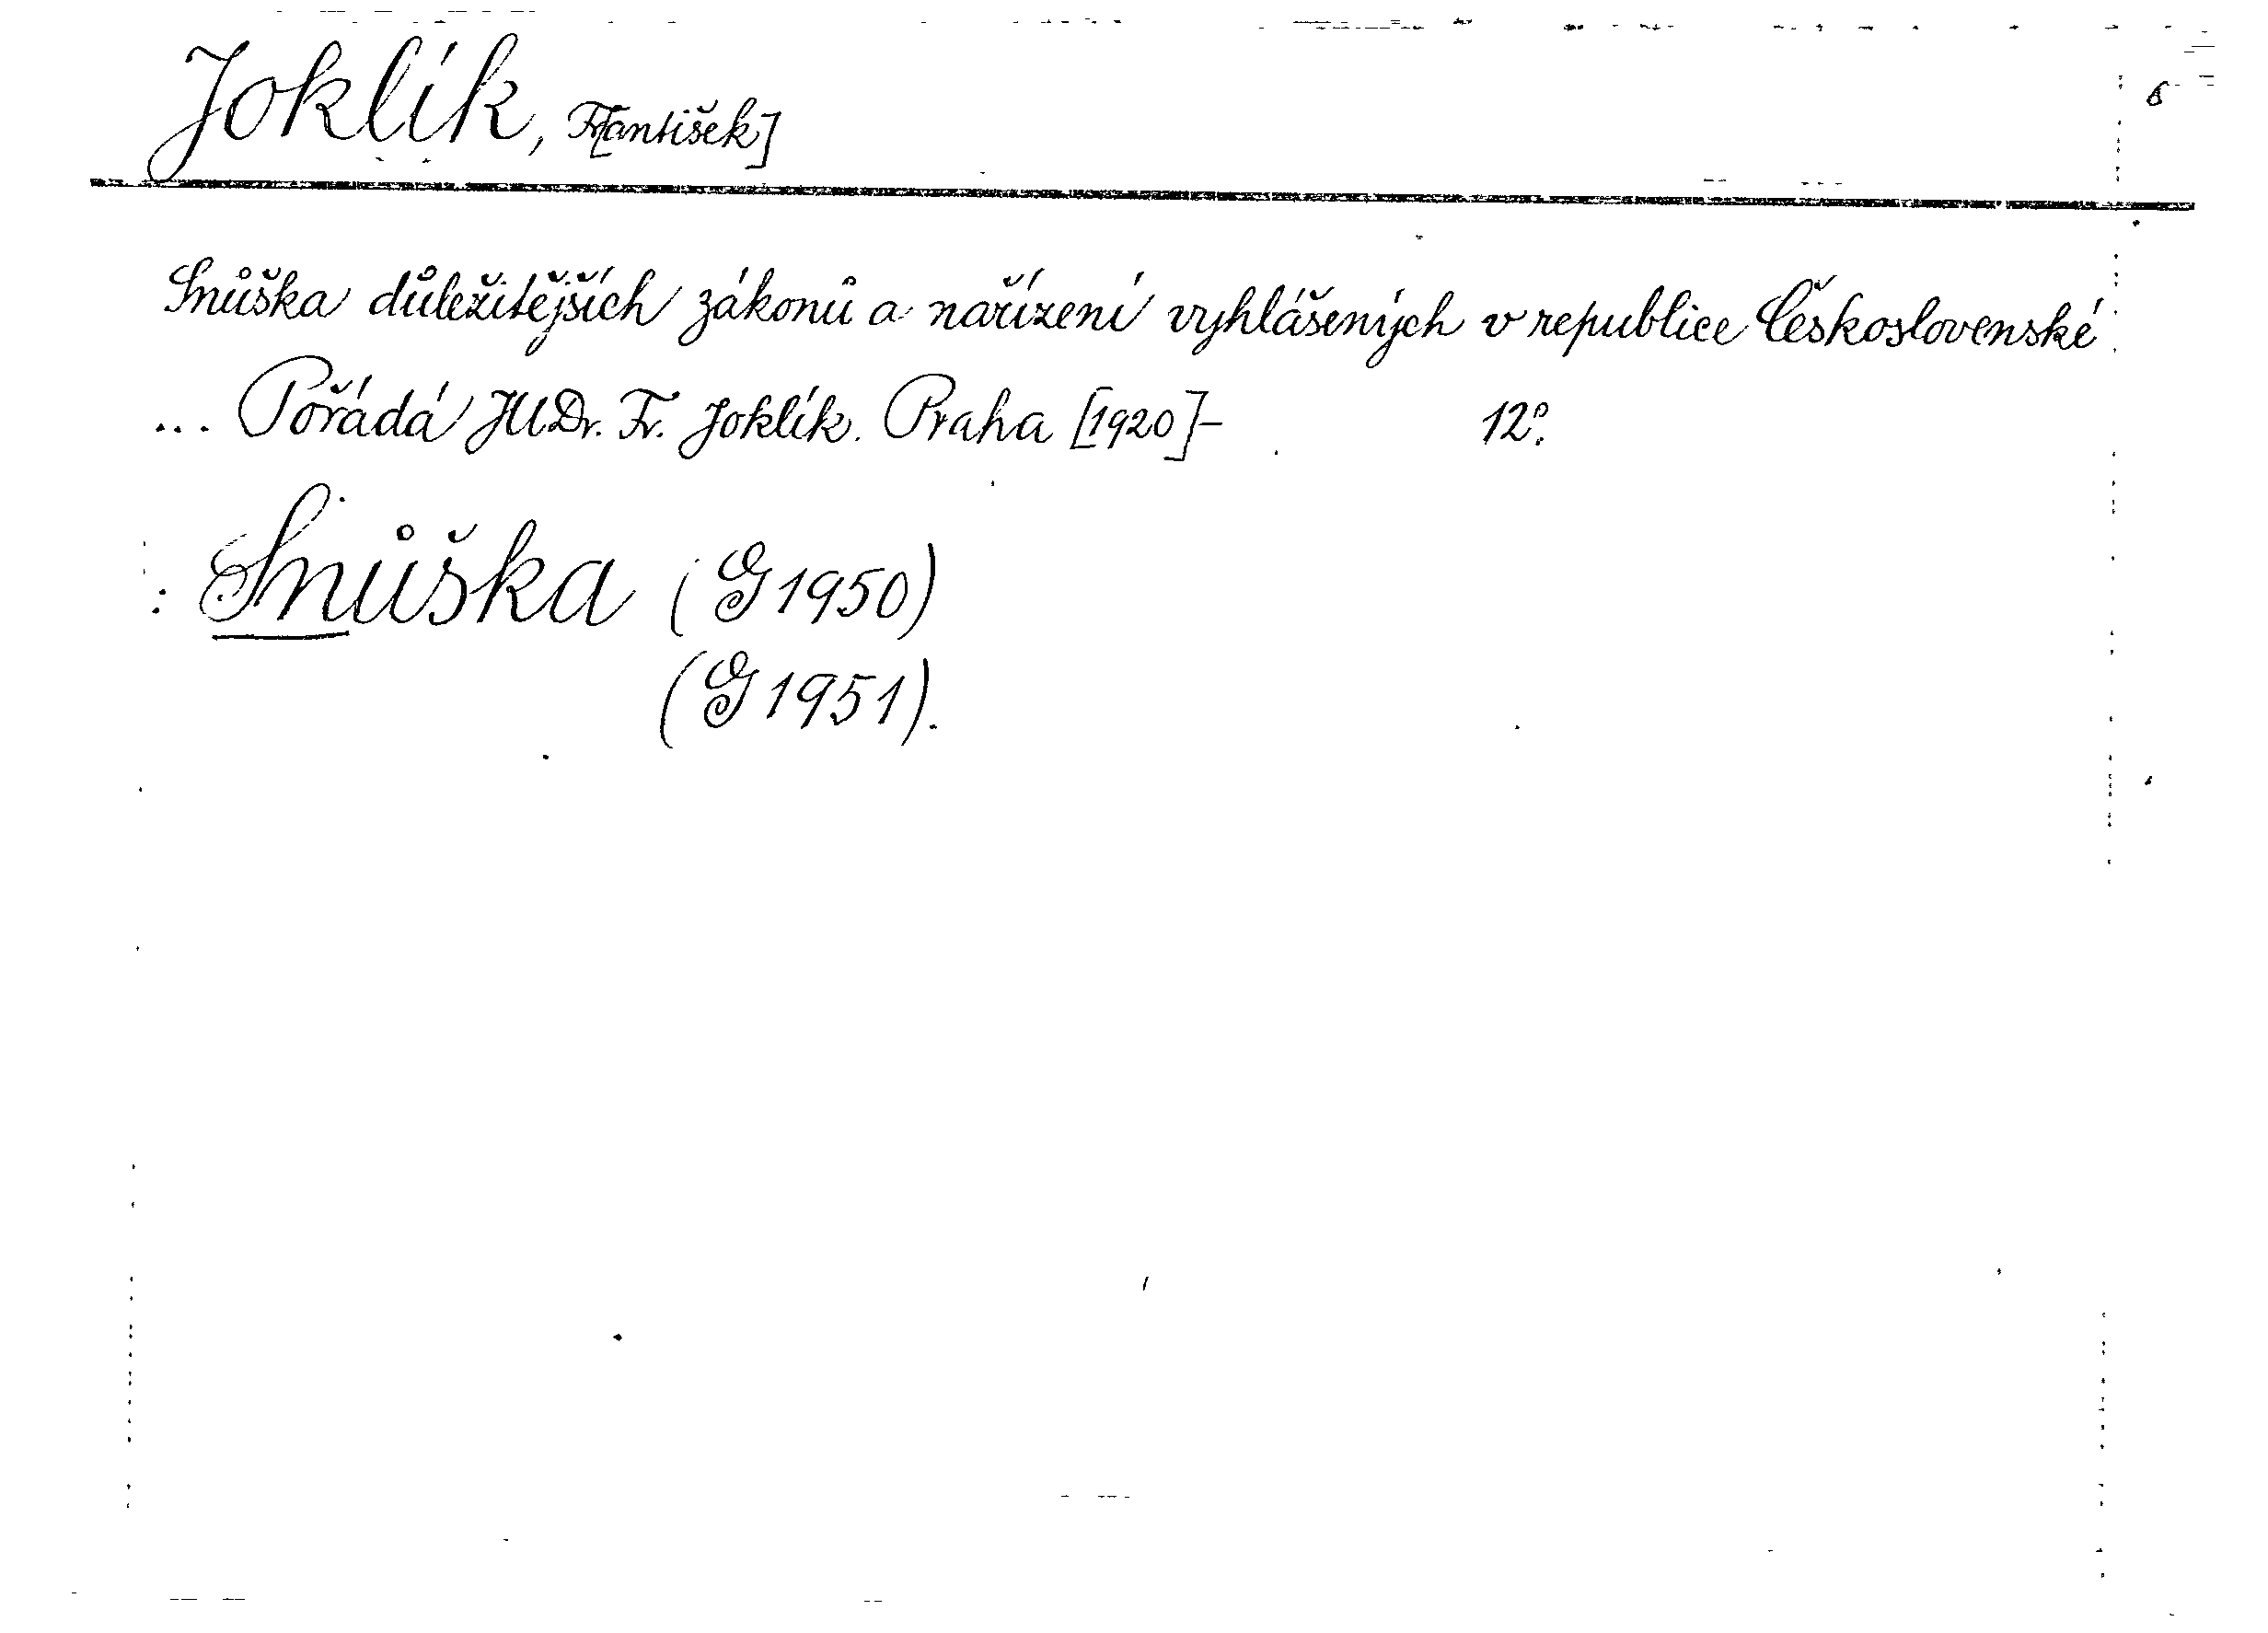 Joklík, Fr[antišek]
6
Snůška důležitějších zákonů a nařízení vyhlášených v republice Československé
... Pořádá JUDr. Fr. Joklík. Praha [1920]- 12°.
: Snůška (G 1950)
(G 1951).